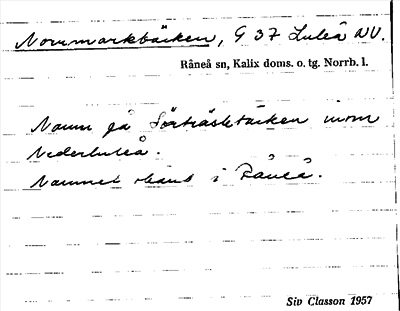 Norrmarkbäcken, G 37 Luleå NV.
Råneå sn, Kalix doms. o. tg. Norrb. l.
Namn på Sörträsktäcken inom
Nederluleå.
Namnet okänt i Råneå.
Siv Classon 1957